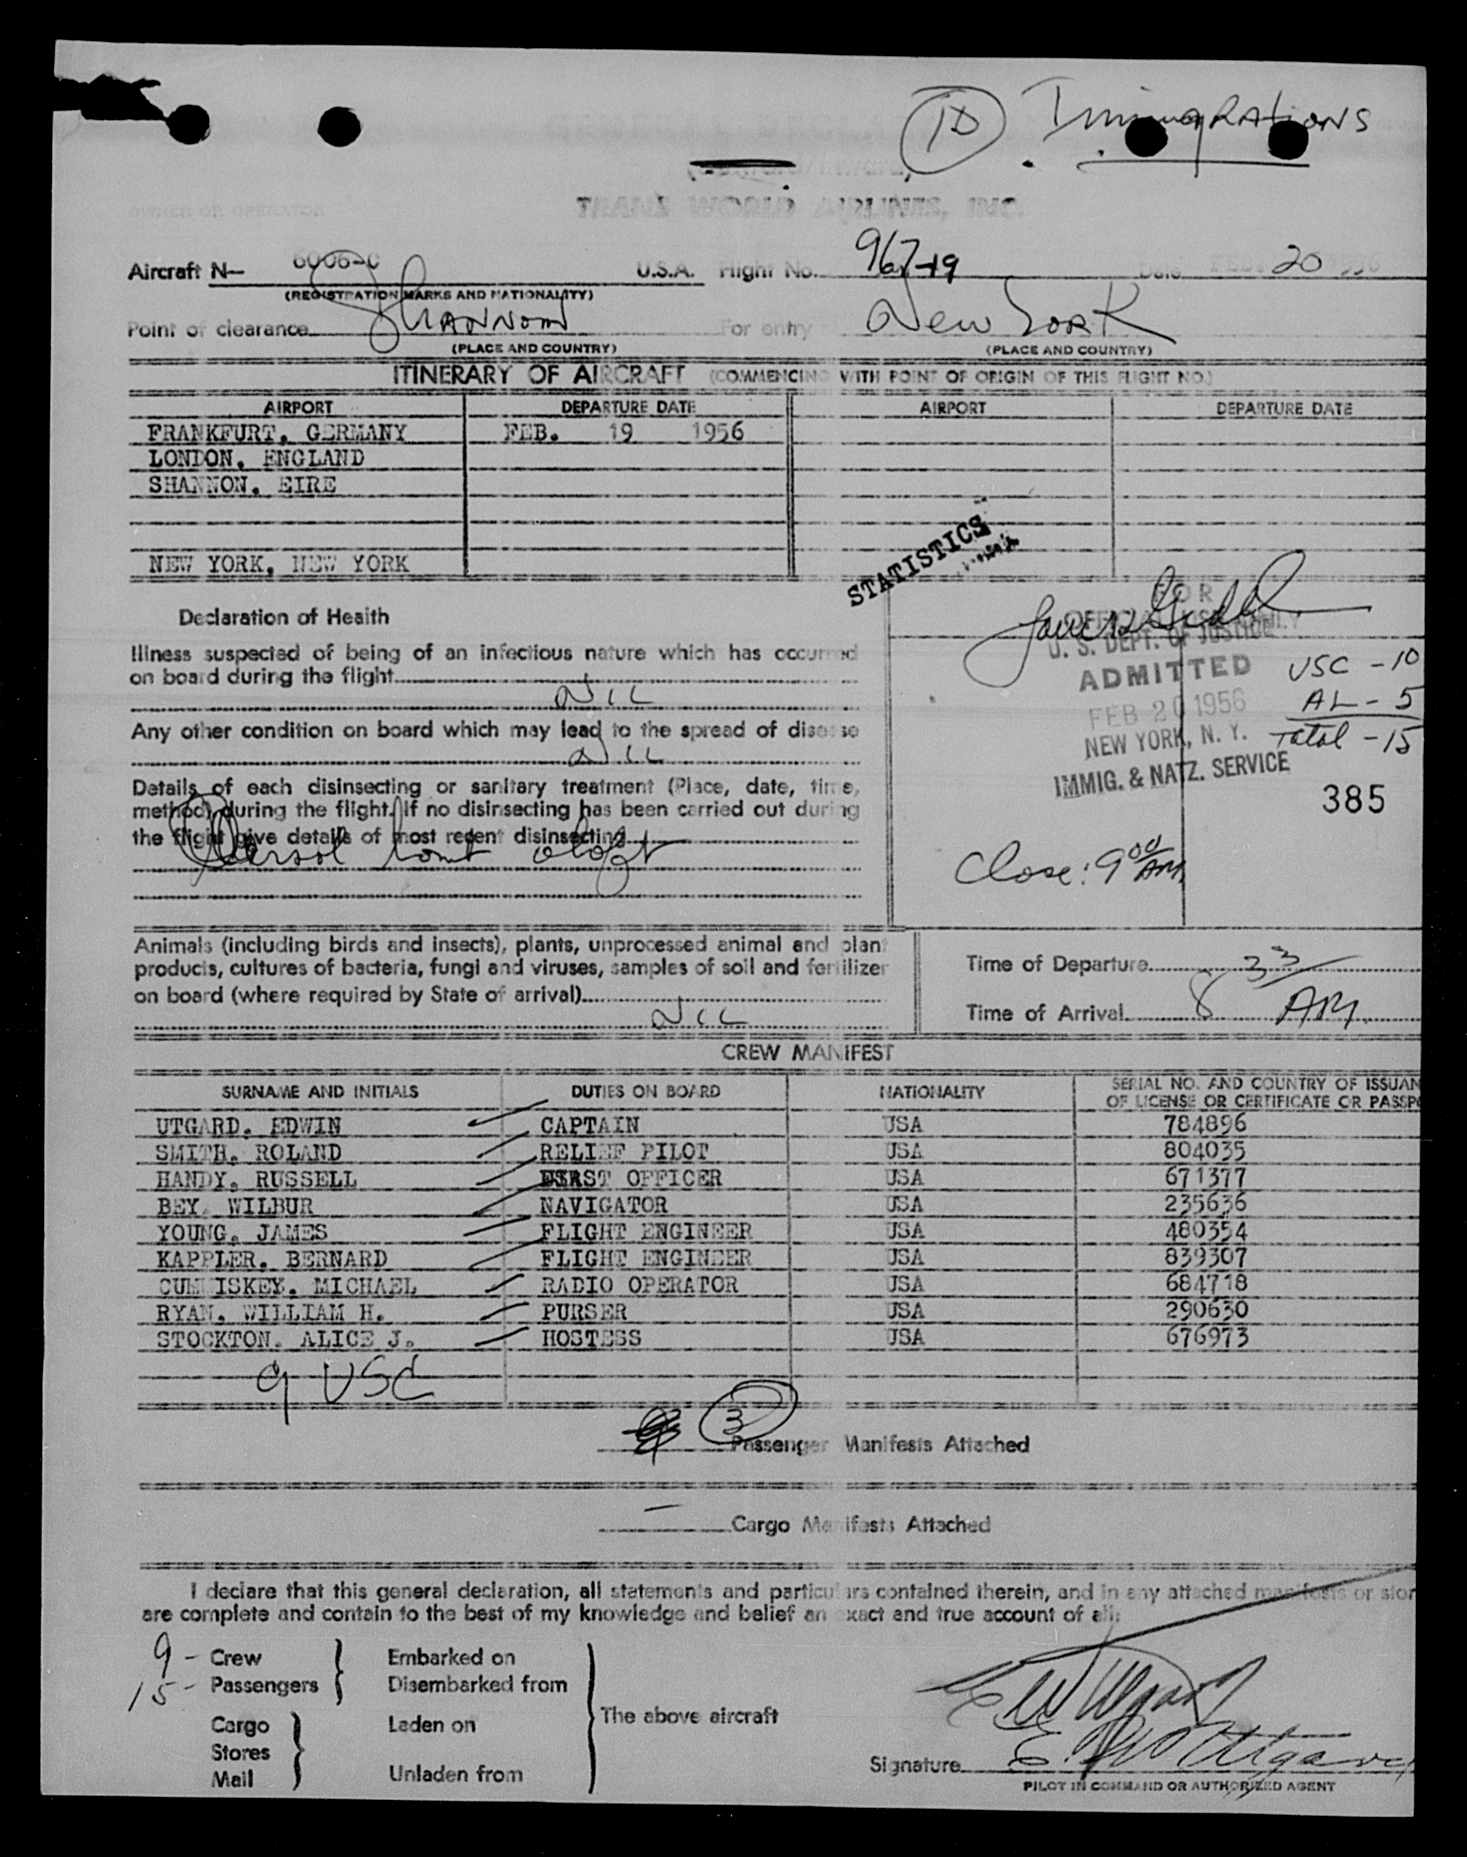 10 Immigrations
TRANS WORLD AIRLINES, INC.
OWNER OR OPERATOR
Aircraft N— 6006-C U.S.A. Flight No. 967-19 Date FEB. 20
(REGISTRATION MARKS AND NATIONALITY)
Point of clearance SHANNON For entry New York
(PLACE AND COUNTRY) (PLACE AND COUNTRY)
ITINERARY OF AIRCRAFT (COMMENCING WITH POINT OF ORIGIN OF THIS FLIGHT NO.)
AIRPORT DEPARTURE DATE AIRPORT DEPARTURE DATE
FRANKFURT, GERMANY FEB. 19 1956
LONDON, ENGLAND
SHANNON, EIRE
NEW YORK, NEW YORK
STATISTICS
Declaration of Health
Illness suspected of being of an infectious nature which has occurred
on board during the flight NIL
Any other condition on board which may lead to the spread of disease
NIL
Details of each disinsecting or sanitary treatment (Place, date, time,
method) during the flight. If no disinsecting has been carried out during
the flight give details of most recent disinsecting
Aerosol bomb
FOR
OFFICIAL USE ONLY
U. S. DEPT. OF JUSTICE
ADMITTED
FEB 20 1956
NEW YORK, N. Y.
IMMIG. & NATZ. SERVICE
USC - 10
AL - 5
Total - 15
385
Close: 9 00 AM
Animals (including birds and insects), plants, unprocessed animal and plant
products, cultures of bacteria, fungi and viruses, samples of soil and fertilizer
on board (where required by State of arrival)
NIL
Time of Departure
Time of Arrival 8 33 AM
CREW MANIFEST
SURNAME AND INITIALS DUTIES ON BOARD NATIONALITY SERIAL NO. AND COUNTRY OF ISSUAN
OF LICENSE OR CERTIFICATE OR PASSPO
UTGARD, EDWIN CAPTAIN USA 784896
SMITH, ROLAND RELIEF PILOT USA 804035
HANDY, RUSSELL FIRST OFFICER USA 671377
BEY, WILBUR NAVIGATOR USA 235636
YOUNG, JAMES FLIGHT ENGINEER USA 480354
KAPPLER, BERNARD FLIGHT ENGINEER USA 839307
CUMMISKEY, MICHAEL RADIO OPERATOR USA 684718
RYAN, WILLIAM H. PURSER USA 290630
STOCKTON, ALICE J. HOSTESS USA 676973
9 USC
3
Passenger Manifests Attached
— Cargo Manifests Attached
I declare that this general declaration, all statements and particulars contained therein, and in any attached manifests or stor
are complete and contain to the best of my knowledge and belief an exact and true account of all:
9 - Crew Embarked on
15 - Passengers Disembarked from
The above aircraft
Cargo Laden on
Stores
Mail Unladen from
Signature E. W. Utgard
PILOT IN COMMAND OR AUTHORIZED AGENT